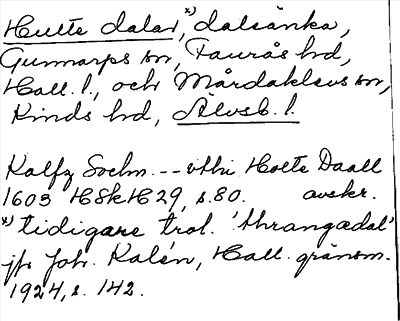 Hulte dalar, x) dalsänka,
Gunnarps sn, Faurås hd,
Hall. l., och Mårdaklevs sn,
Kinds hd, Älvsb. l.
Kalfz Sochn. -- vthi Holte Daall
1603 HSkH29, s. 80. avskr.
x) tidigare trol. 'thrangædal'
jfr Joh. Kalén, Hall. gränsm.
1924, s. 142.